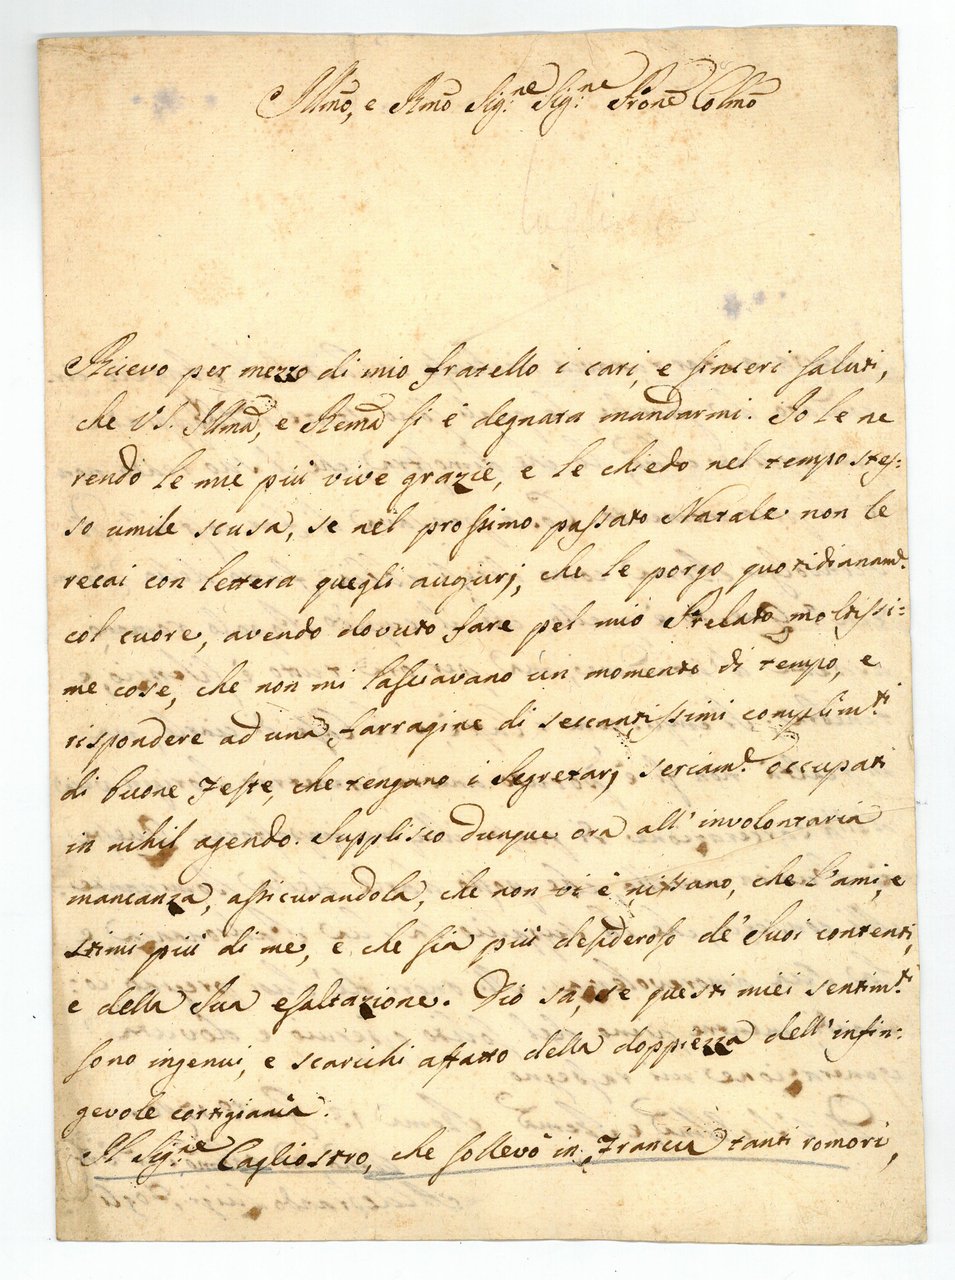 Illmo, e Rmo Sig:re Sig:re Prone Colmo
Ricevo per mezzo di mio fratello i cari, e sinceri saluti,
che V.S. Illma, e Rema si è degnata mandarmi. Io le ne
rendo le mie più vive grazie, e le chiedo nel tempo stes-
so umile scusa, se nel prossimo passato Natale non le
recai con lettera quegli augurj, che le porgo quotidianam:e
col cuore, avendo dovuto fare pel mio Prelato moltissi-
me cose, che non mi lasciavano un momento di tempo, e
rispondere ad una farragine di seccantissimi complim:ti
di buone Feste, che tengano i Segretarj seriam:e occupati
in nihil agendo. Supplisco dunque ora all' involontaria
mancanza, assicurandola, che non vi è nissuno, che l'ami, e
stimi più di me, e che sia più desideroso de' Suoi contenti,
e della Sua esaltazione. Dio sa, se questi miei sentim:ti
sono ingenui, e scarichi affatto della doppiezza dell' infin-
gevole cortigiania.
Il Sig:re Cagliostro, che sollevò in Francia tanti romori,